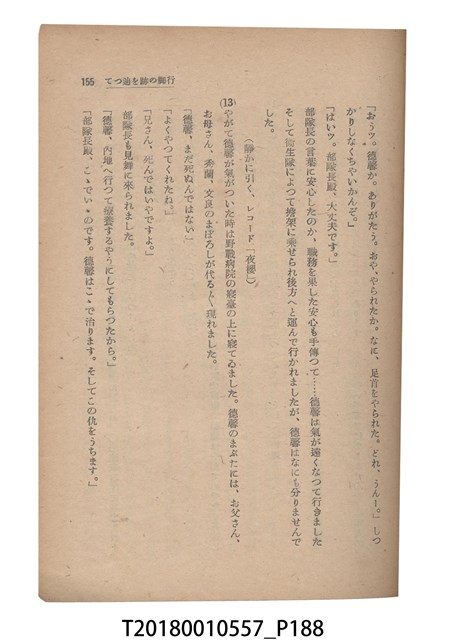 155 行脚の跡を追つて
「おぅッ。德馨か。ありがたう。おや、やられたか。なに、足首をやられた。どれ、うんー。」しつ
かりしなくちやいかんぞ。」
「はいッ。部隊長殿、大丈夫です。」
部隊長の言葉に安心したのか、職務を果した安心も手傳つて……德馨は氣が遠くなつて行きました
そして衛生隊によつて擔架に乘せられ後方へと運んで行かれましたが、德馨はなにも分りませんで
した。
(靜かに引く、レコード「夜櫻」)
(13)やがて德馨が氣がついた時は野戰病院の寢臺の上に寢てゐました。德馨のまぶたには、お父さん、
お母さん、秀蘭、文良のまぼろしが代る〲現れました。
「德馨、まだ死ぬんではない」
「よくやつてくれたね。」
「兄さん、死んではいやですよ。」
部隊長も見舞に來られました。
「德馨、內地へ行つて療養するやうにしてもらつたから。」
「部隊長殿、こゝでいゝのです。德馨はこゝで治ります。そしてこの仇をうちます。」
T20180010557_P188